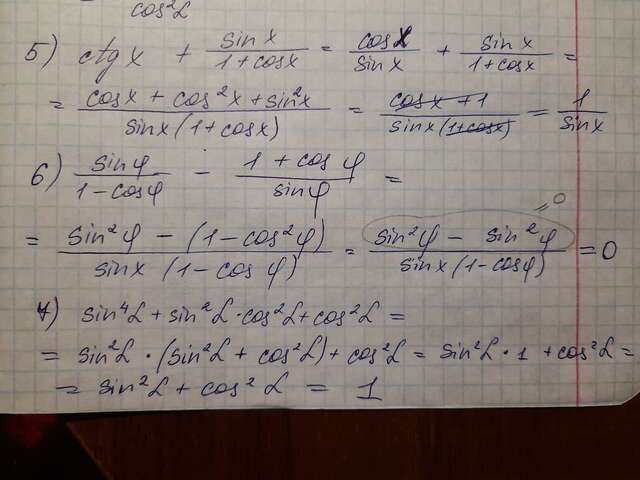 cos²α
5) ctg x + sin x / 1 + cos x = cos x / sin x + sin x / 1 + cos x =
= cos x + cos²x + sin²x / sin x (1 + cos x) = cos x + 1 / sin x (1 + cos x) = 1 / sin x
6) sin φ / 1 - cos φ - 1 + cos φ / sin φ =
= sin²φ - (1 - cos²φ) / sin x (1 - cos φ) = sin²φ - sin²φ / sin x (1 - cos φ) = 0
= 0
7) sin⁴α + sin²α · cos²α + cos²α =
= sin²α · (sin²α + cos²α) + cos²α = sin²α · 1 + cos²α =
= sin²α + cos²α = 1